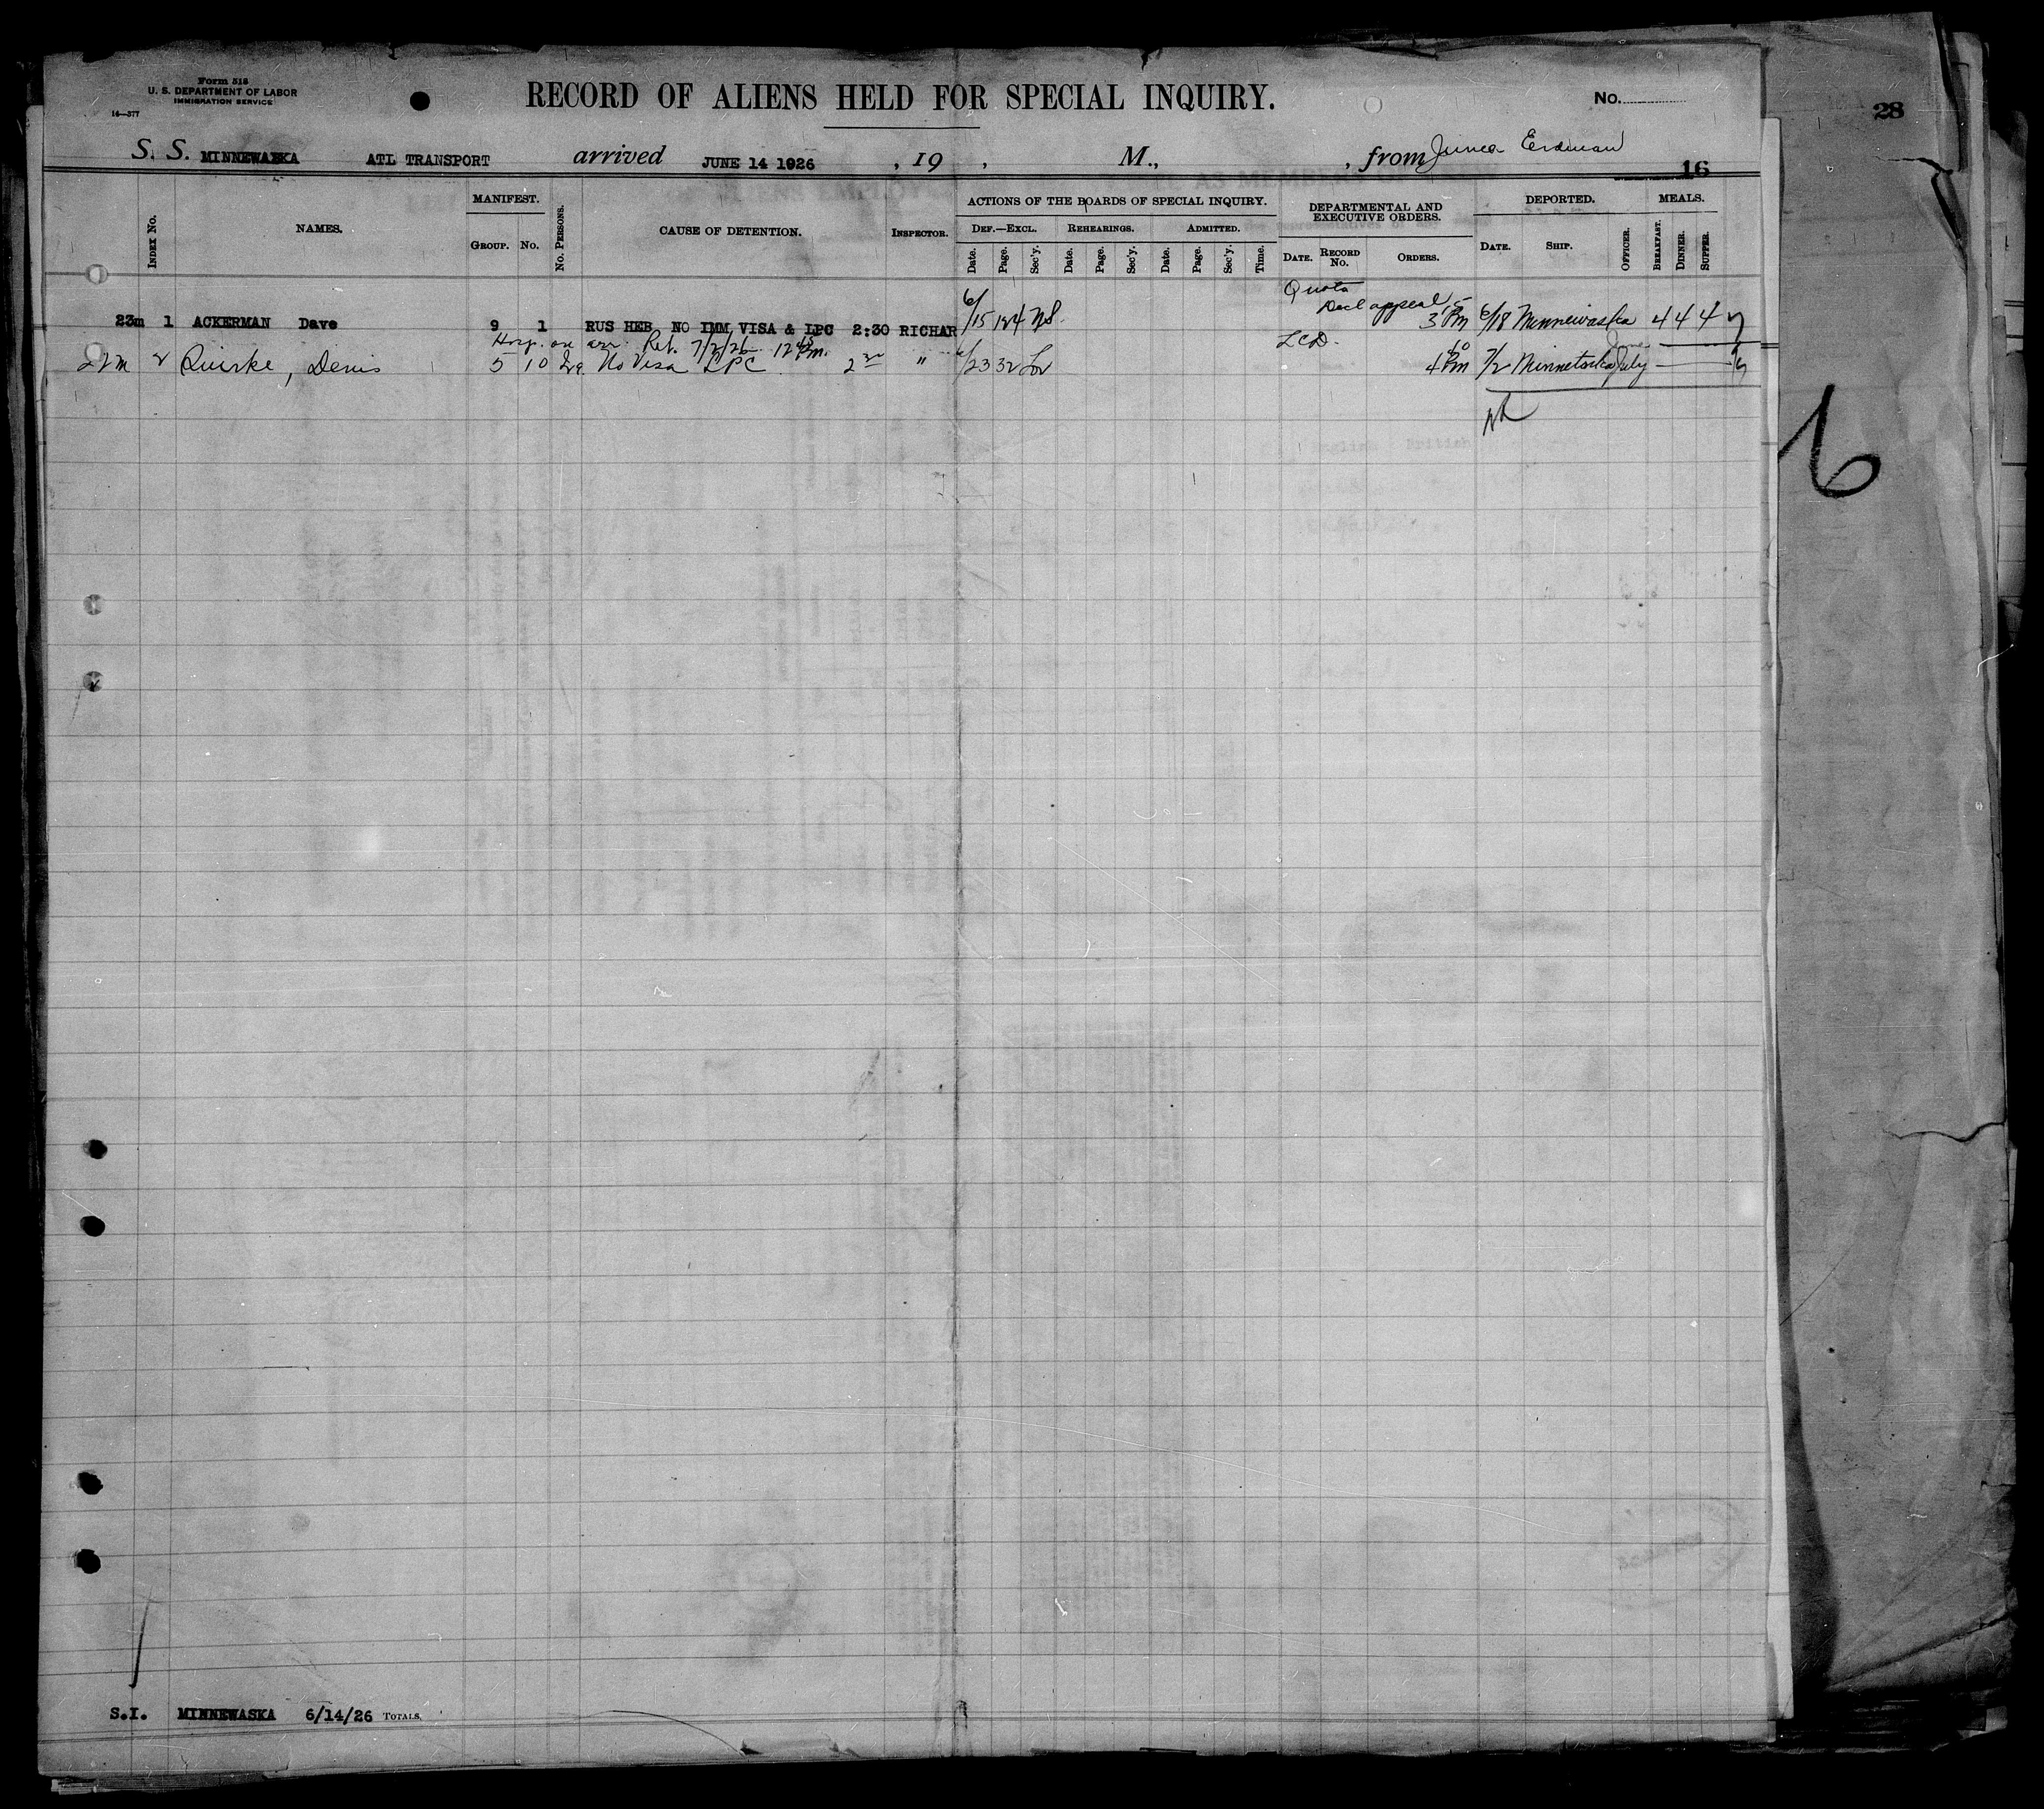 Form 518
U. S. DEPARTMENT OF LABOR
IMMIGRATION SERVICE
14—377
RECORD OF ALIENS HELD FOR SPECIAL INQUIRY.
No.
28
S. S. MINNEWASKA ATL TRANSPORT arrived JUNE 14 1926 , 19 , M., , from
16
Index No.
NAMES.
MANIFEST.
Group. No.
No. Persons.
CAUSE OF DETENTION.
Inspector.
ACTIONS OF THE BOARDS OF SPECIAL INQUIRY.
Def.—Excl. Rehearings. Admitted.
Date. Page. Sec'y. Date. Page. Sec'y. Date. Page. Sec'y. Time.
DEPARTMENTAL AND
EXECUTIVE ORDERS.
Date. Record No. Orders.
DEPORTED.
Date. Ship. Officer.
MEALS.
Breakfast. Dinner. Supper.
Quota
Decl appeal
23m 1 ACKERMAN Dave 9 1 RUS HEB NO IMM VISA & LPC 2:30 RICHAR 6/15 124 3 15 Pm 6/18 Minnewaska 4 4 4
Hosp. on arr. Ret. 7/2/26 12 45 Pm. June
22m 2 Quirke, Denis 5 10 No Visa LPC 2 30 " 6/23 32 4 10 Pm 7/2 Minnetonka July
6
S.I. MINNEWASKA 6/14/26 Totals.